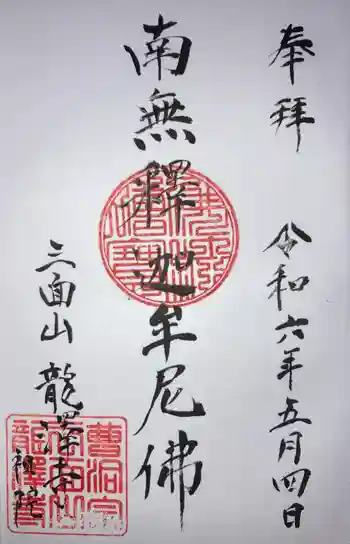 奉拝
令和六年五月四日
南無釋迦牟尼佛
三面山 龍澤寺
曹洞宗
龍澤寺